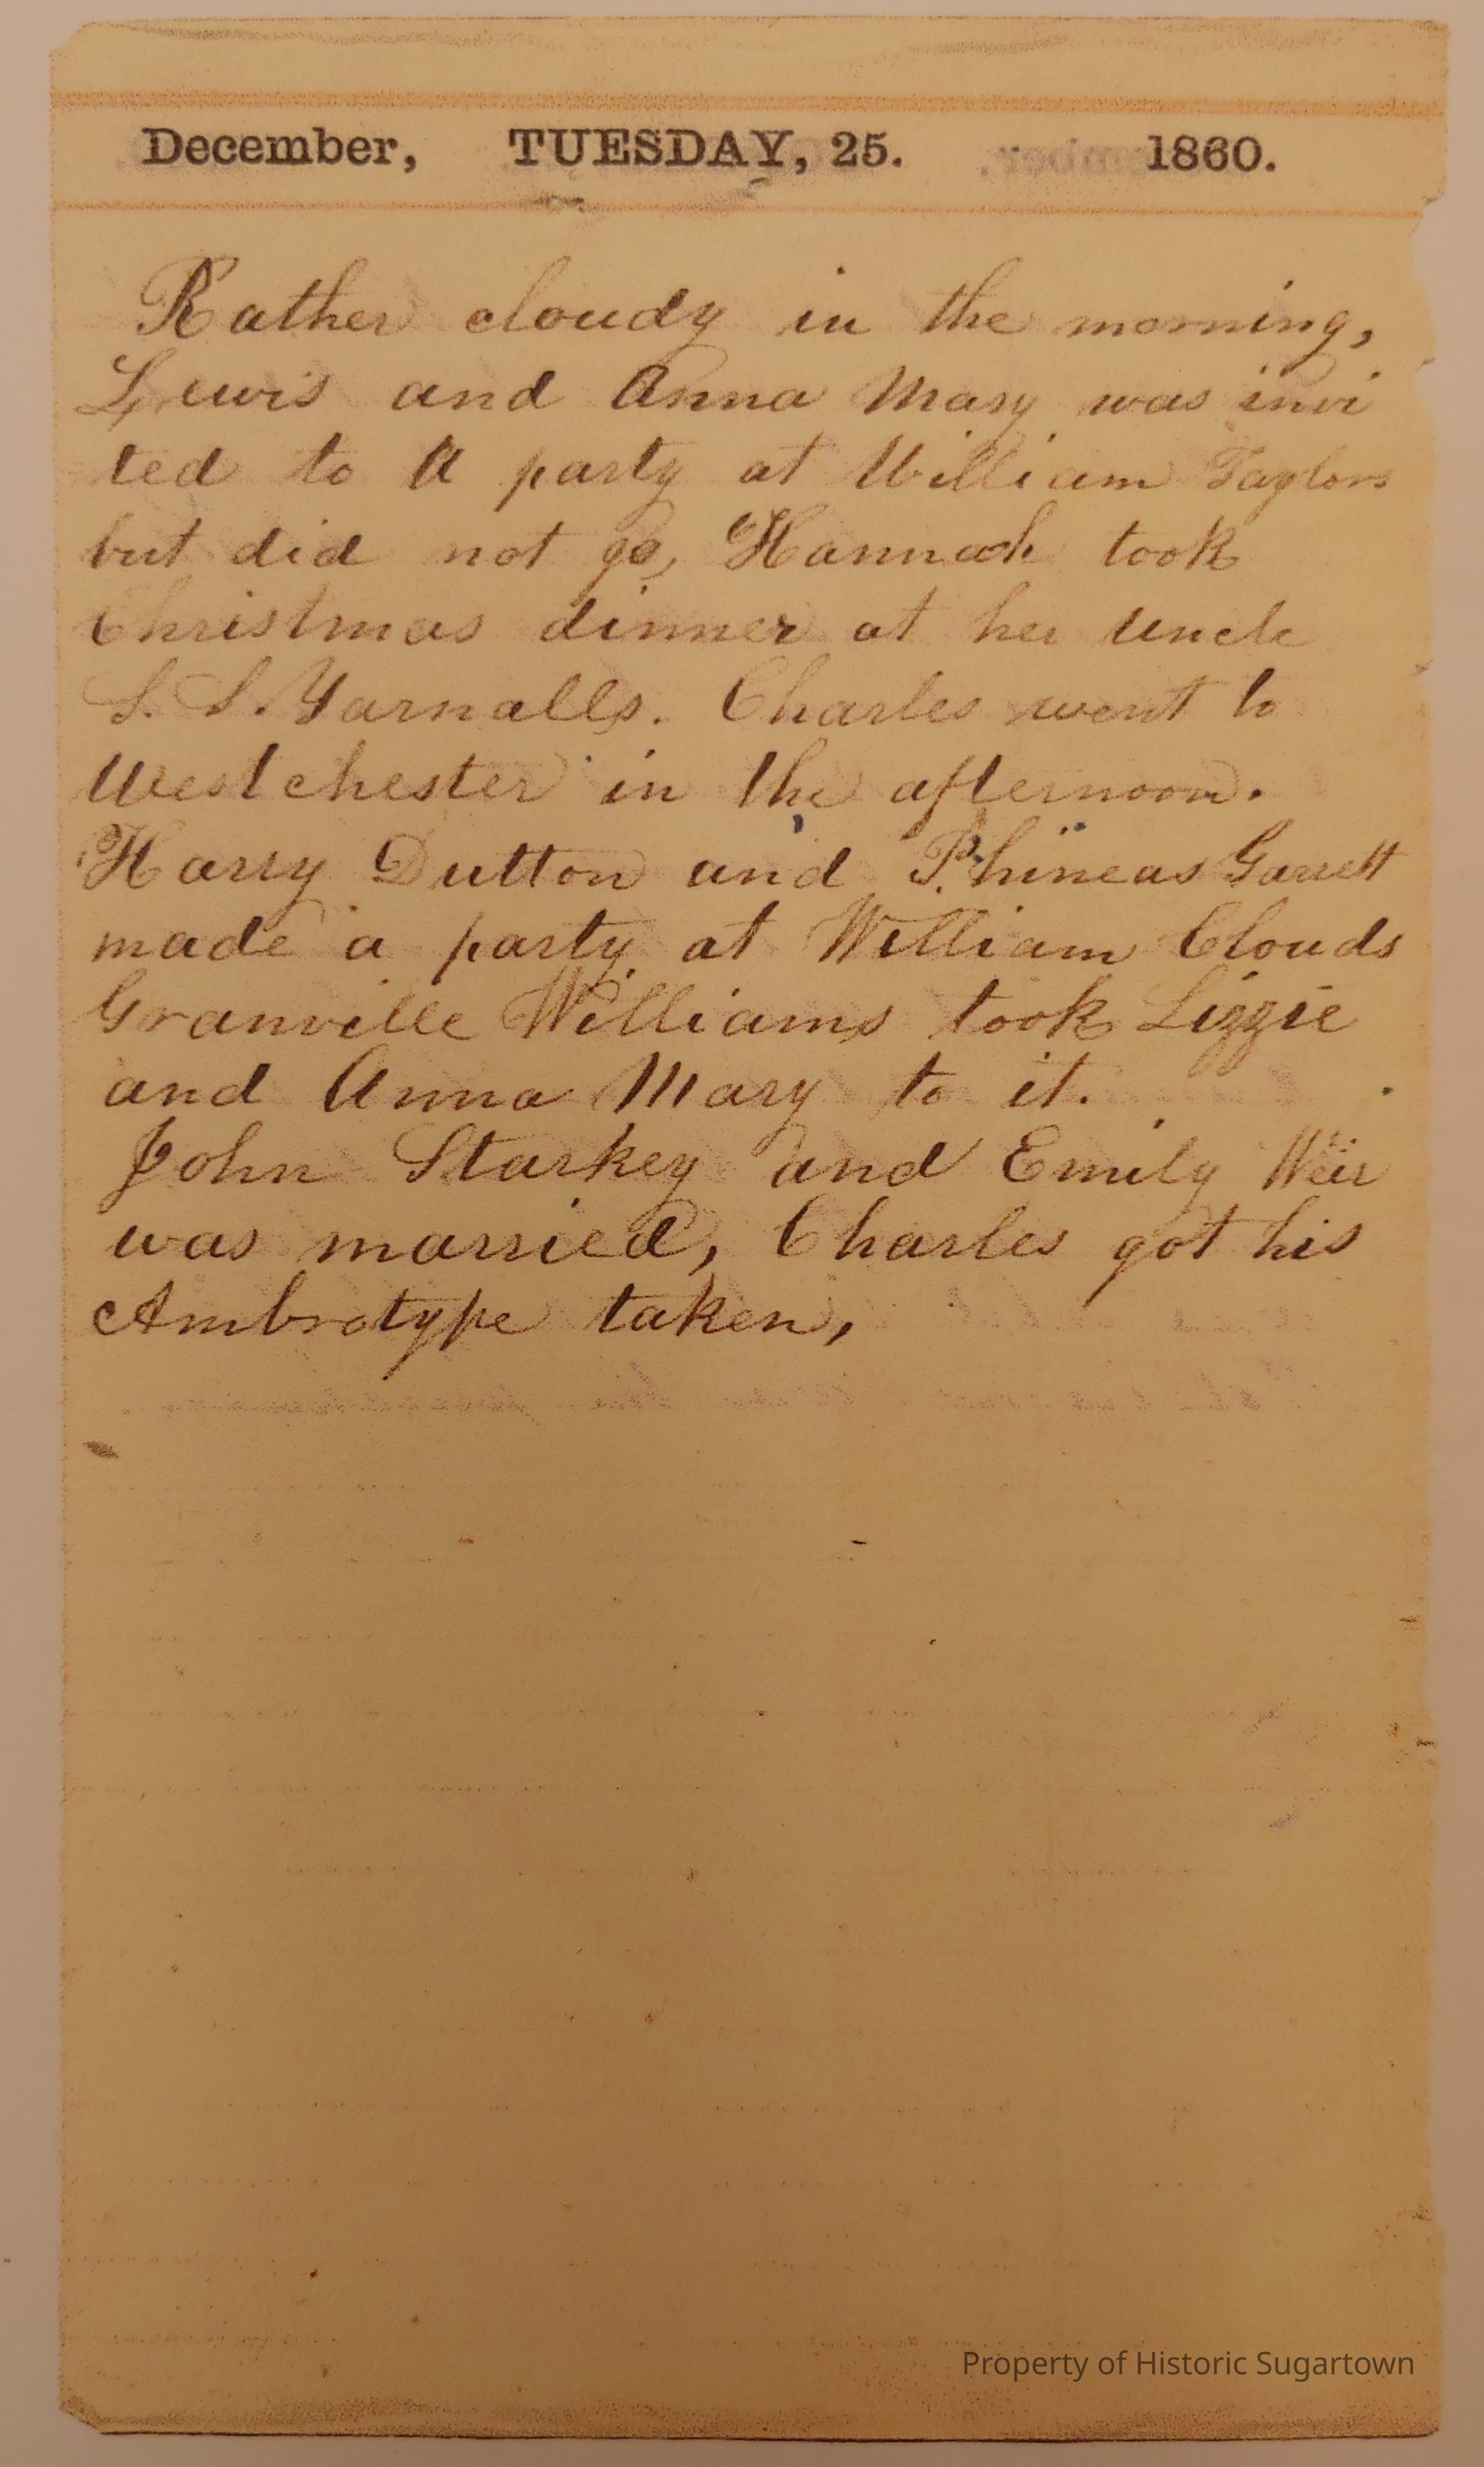 December, TUESDAY, 25. 1860.
Rather cloudy in the morning,
Lewis and Anna Mary was invi
ted to a party at William Taylors
but did not go, Hannah took
Christmas dinner at her Uncle
S. S. Yarnalls. Charles went to
Westchester in the afternoon.
Harry Dutton and Phineas Garrett
made a party at William Clouds
Granville Williams took Lizzie
and Anna Mary to it.
John Starkey and Emily Weir
was married, Charles got his
Ambrotype taken,
Property of Historic Sugartown